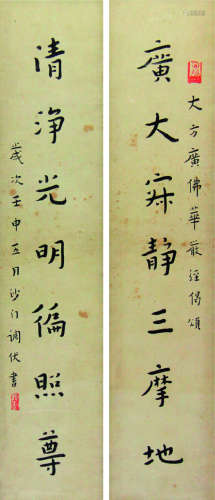 大方廣佛華嚴經偈頌
廣大寂靜三摩地
清淨光明徧照尊
歲次壬申五月沙门調伏書